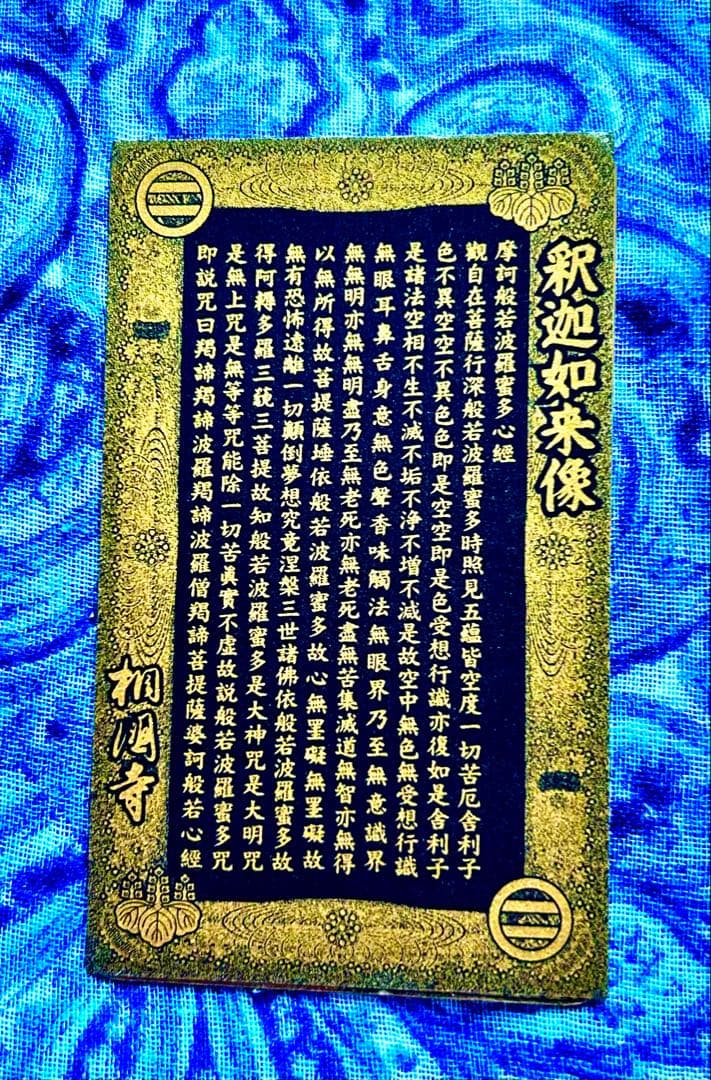 釈迦如来像
摩訶般若波羅蜜多心經
觀自在菩薩行深般若波羅蜜多時照見五蘊皆空度一切苦厄舍利子
色不異空空不異色色即是空空即是色受想行識亦復如是舍利子
是諸法空相不生不滅不垢不淨不增不減是故空中無色無受想行識
無眼耳鼻舌身意無色聲香味觸法無眼界乃至無意識界
無無明亦無無明盡乃至無老死亦無老死盡無苦集滅道無智亦無得
以無所得故菩提薩埵依般若波羅蜜多故心無罣礙無罣礙故
無有恐怖遠離一切顚倒夢想究竟涅槃三世諸佛依般若波羅蜜多故
得阿耨多羅三藐三菩提故知般若波羅蜜多是大神咒是大明咒
是無上咒是無等等咒能除一切苦眞實不虛故説般若波羅蜜多咒
即説咒曰羯諦羯諦波羅羯諦波羅僧羯諦菩提薩婆訶般若心經
相国寺